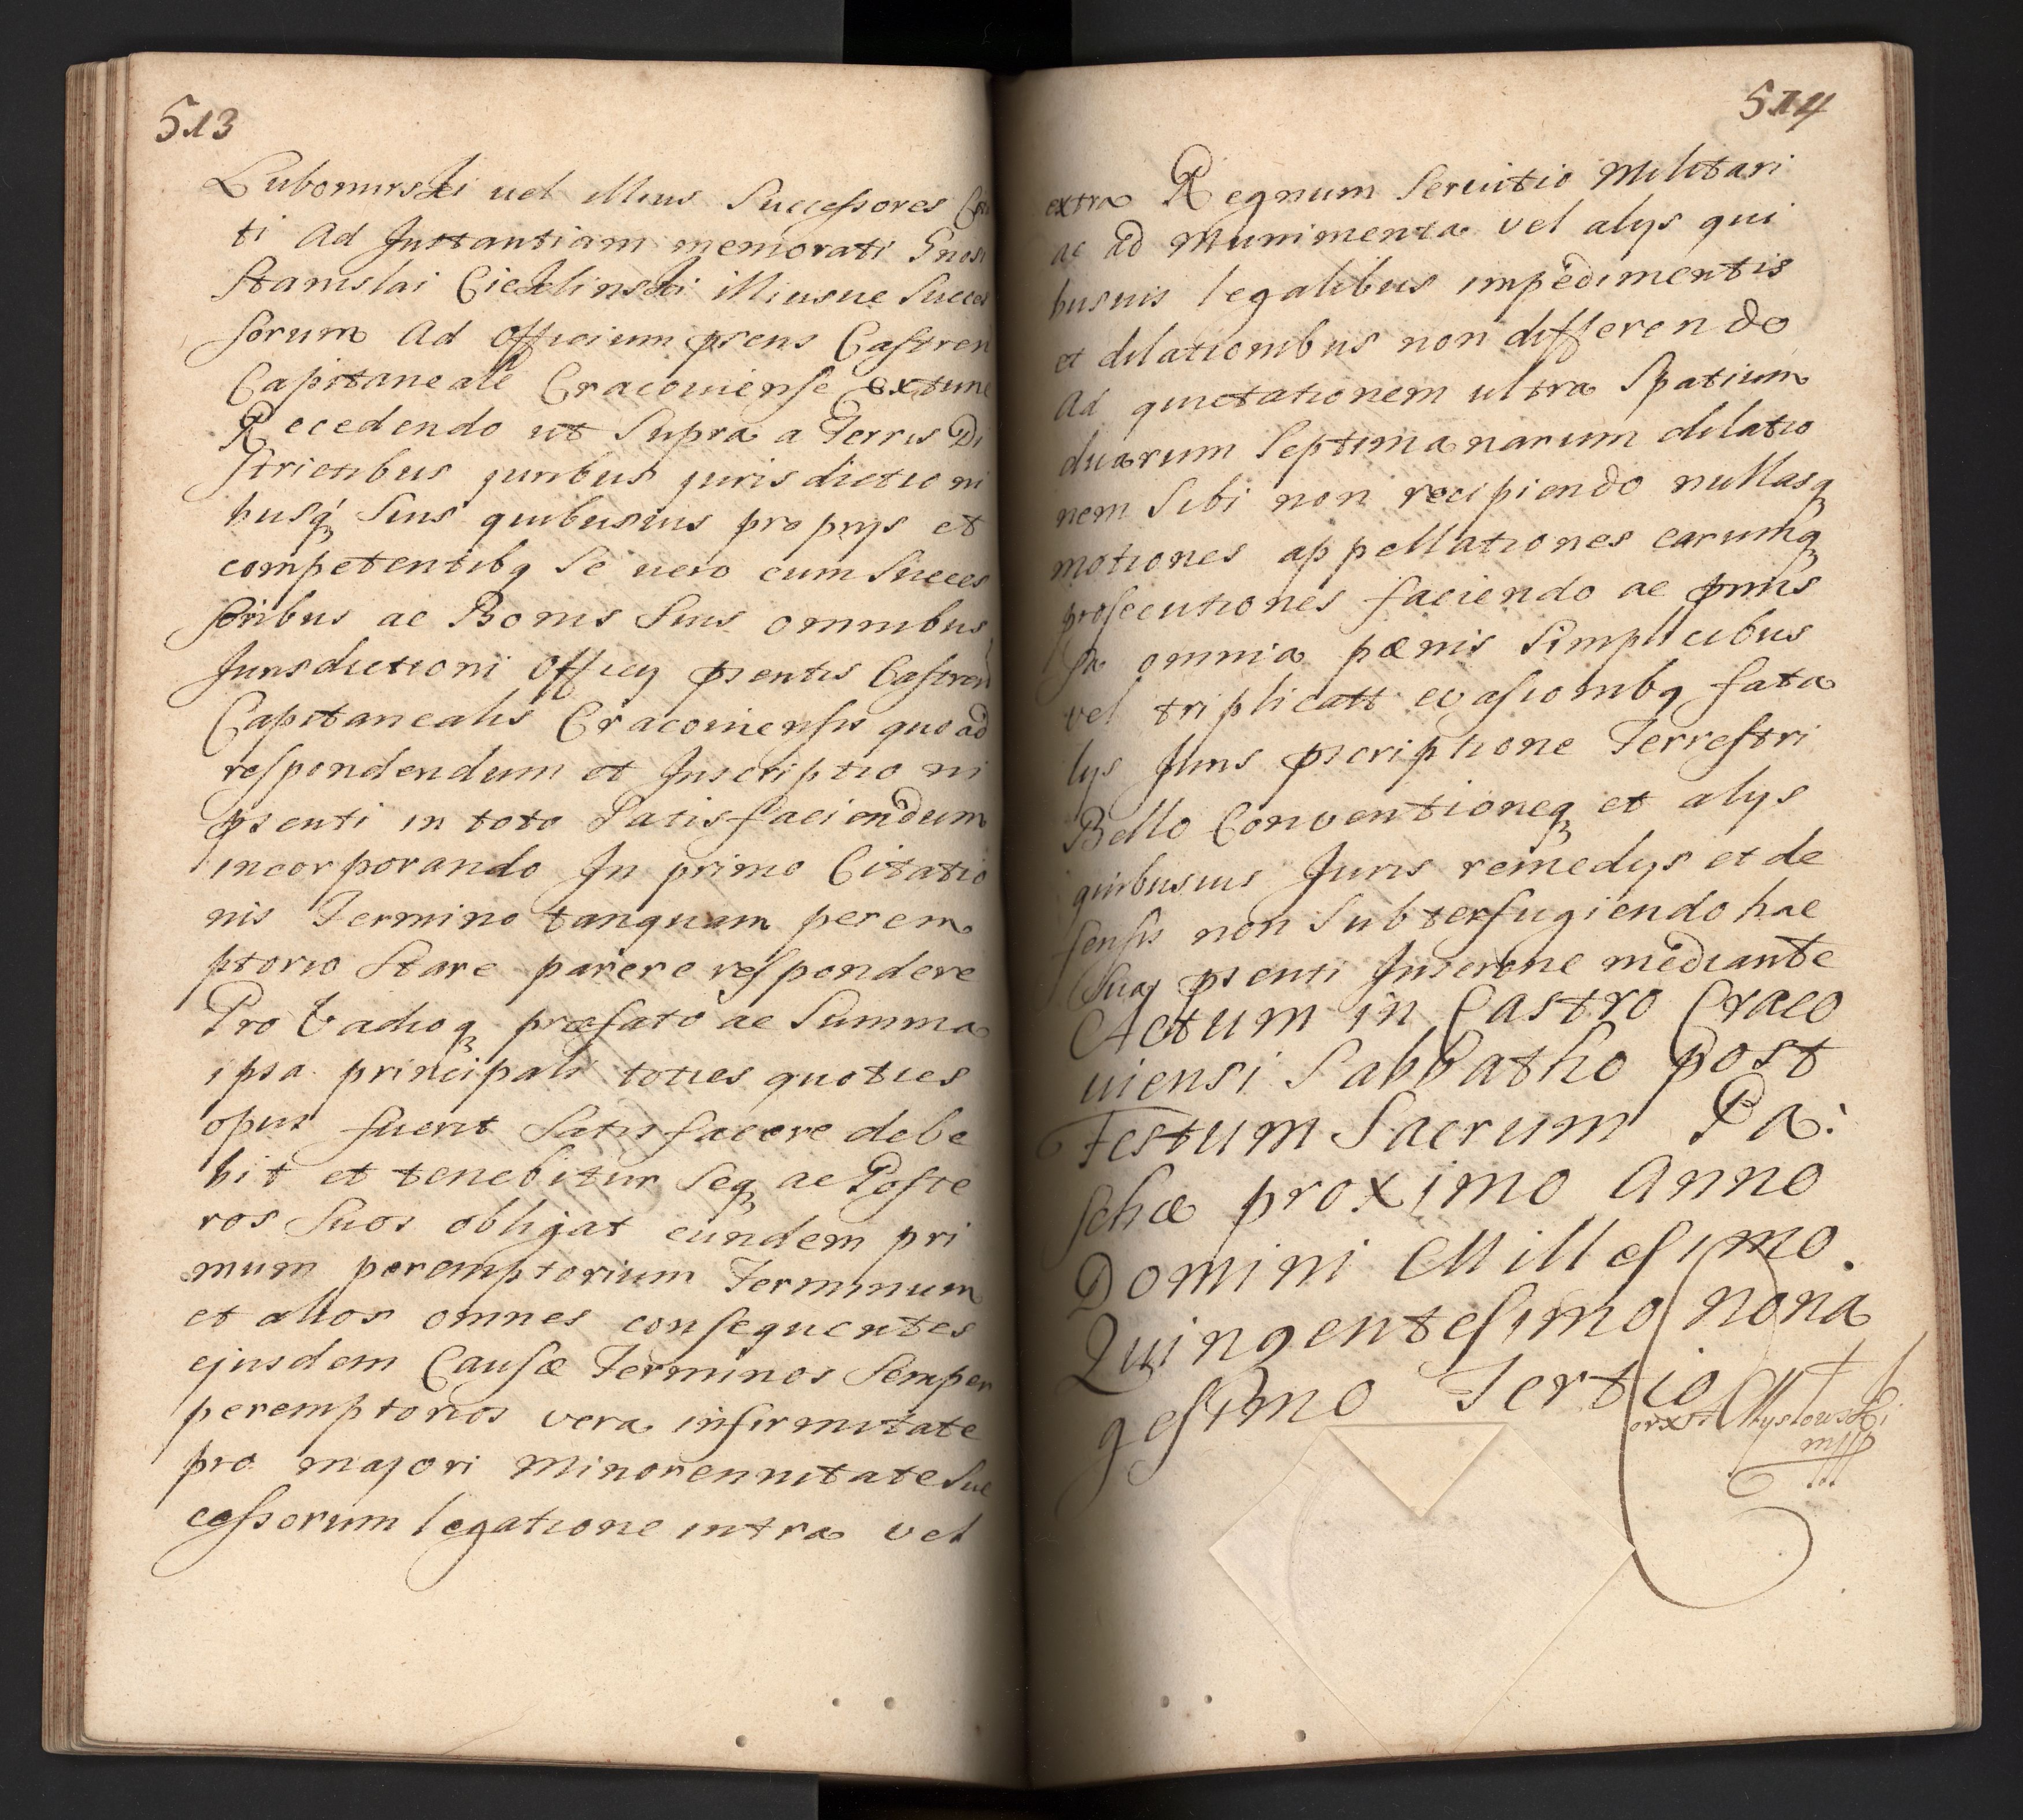 513
Lubomirski uel illius Successores Cita
ti Ad Instantiam memorati Gnosi
Stanislai Cieklinski illiusue Succes
sorum Ad Officium prens Castren
Capitaneale Cracouiense extunc
Recedendo ut Supra a Terris Di
strictibus juribus jurisdictioni
busq; Suis quibusuis proprys et
competentibq Se uero cum Succes
soribus ac Bonis Suis omnibus
Jurisdictioni Officy psentis Castren
Capitanealis Cracouiensis quoad
respondendum et Inscriptioni
psenti in toto Satisfaciendum
incorporando In primo Citatio
nis Termino tanquam perem
ptorio Stare parere respondere
Pro Vadioq; præfato ac Summa
ipsa principali toties quoties
opus fuerit Satisfacere debe
bit et tenebitur Seq; ac Poste
ros Suos obligat eundem pri
mum peremptorium Terminum
et alios omnes consequentes
ejusdem Causæ Terminos Semper
peremptorios vera infirmitate
pro majori Minorennitate Suc
cessorum legatione intra vel
514
extra Regnum Seruitio Militari
ac ad Munimenta vel alys qui
busuis legalibus impedimentis
et dilationibus non differendo
Ad quietationem ultra Spatium
duarum Septimanarum dilatio
nem Sibi non recipiendo nullasq;
motiones appellationes earumq;
prosecutiones faciendo ac pmis
sa omnia pænis Simplicibus
vel triplicatt euasionibq fata
lys Juris pscriptione Terrestri
Bello Conventioneq; et alys
quibusuis Juris remedys et de
fensis non Subterfugiendo hac
Sua psenti Inscrione mediante
Actum in Castro Craco
uiensi Sabbatho post
Festum Sacrum Pa:
schæ proximo Anno
Domini Millesimo
Quingentesimo Nona
gesimo Tertio
Mysłowski
mpp